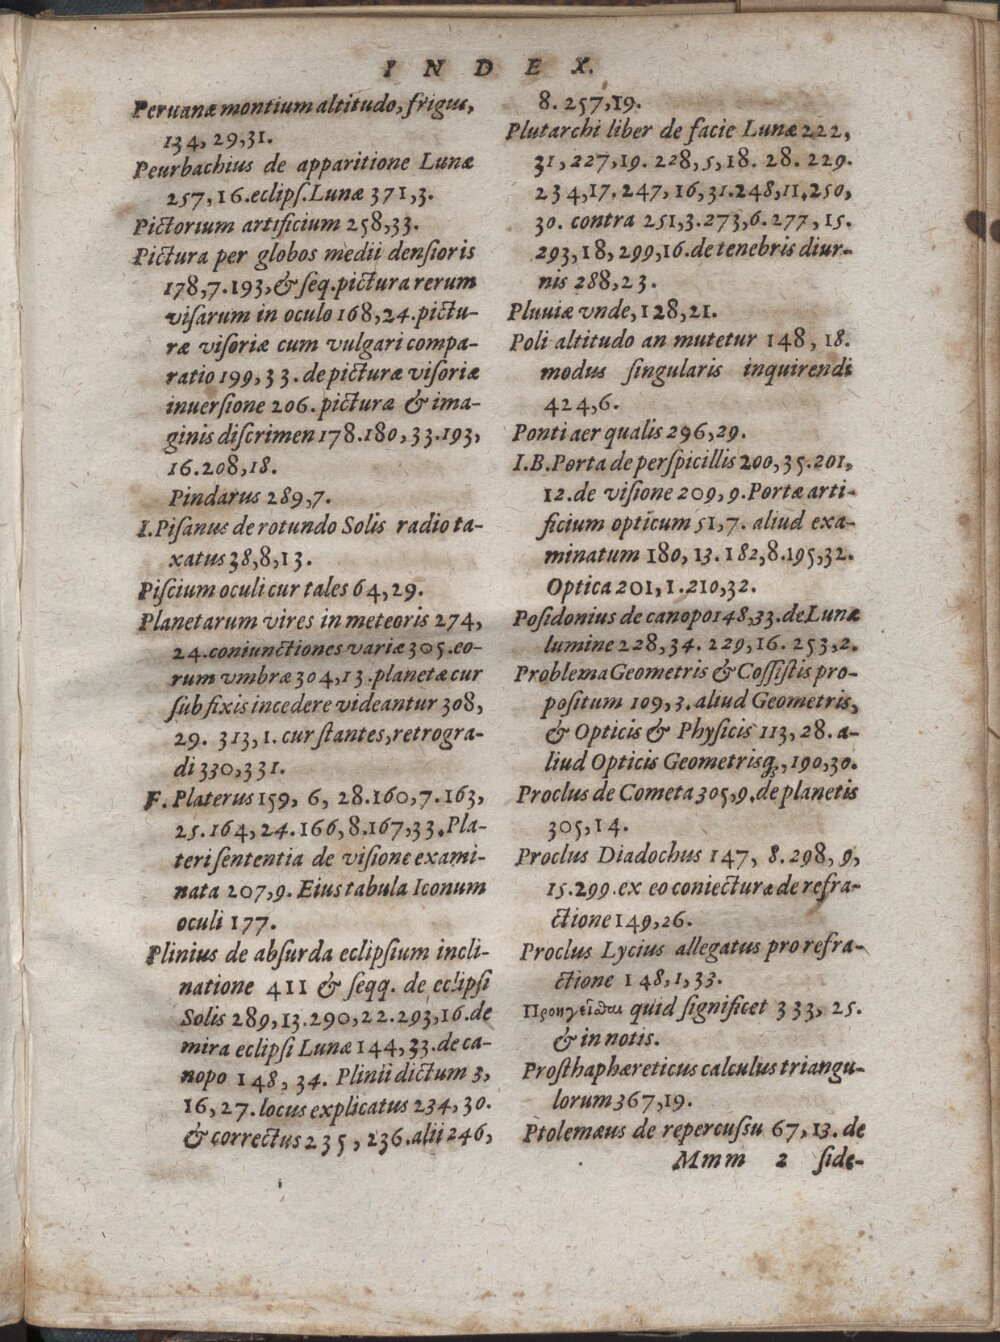 INDEX.
Peruanæ montium altitudo, frigus,
134, 29, 31.
Peurbachius de apparitione Lunæ
257, 16. eclipſ. Lunæ 371, 3.
Pictorium artificium 258, 33.
Pictura per globos medii denſioris
178, 7. 193, & ſeq. pictura rerum
viſarum in oculo 168, 24. pictu-
ræ viſoriæ cum vulgari compa-
ratio 199, 33. de picturæ viſoriæ
inuerſione 206. picturæ & ima-
ginis diſcrimen 178. 180, 33. 193,
16. 208, 18.
Pindarus 289, 7.
I. Piſanus de rotundo Solis radio ta-
xatus 38, 8, 13.
Piſcium oculi cur tales 64, 29.
Planetarum vires in meteoris 274,
24. coniunctiones variæ 305. eo-
rum vmbræ 304, 13. planetæ cur
ſub fixis incedere videantur 308,
29. 313, 1. cur ſtantes, retrogra-
di 330, 331.
F. Platerus 159, 6, 28. 160, 7. 163,
25. 164, 24. 166, 8. 167, 33. Pla-
teri ſententia de viſione exami-
nata 207, 9. Eius tabula Iconum
oculi 177.
Plinius de abſurda eclipſium incli-
natione 411 & ſeqq. de eclipſi
Solis 289, 13. 290, 22. 293, 16. de
mira eclipſi Lunæ 144, 33. de ca-
nopo 148, 34. Plinii dictum 3,
16, 27. locus explicatus 234, 30.
& correctus 235, 236. alii 246,
8. 257, 19.
Plutarchi liber de facie Lunæ 222,
31, 227, 19. 228, 5, 18. 28. 229.
234, 17. 247, 16, 31. 248, 11, 250,
30. contra 251, 3. 273, 6. 277, 15.
293, 18, 299, 16. de tenebris diur-
nis 288, 23.
Pluuiæ vnde, 128, 21.
Poli altitudo an mutetur 148, 18.
modus ſingularis inquirendi
424, 6.
Ponti aer qualis 296, 29.
I. B. Porta de perſpicillis 200, 35. 201,
12. de viſione 209, 9. Portæ arti-
ficium opticum 51, 7. aliud exa-
minatum 180, 13. 182, 8. 195, 32.
Optica 201, 1. 210, 32.
Poſidonius de canopo 148, 33. de Lunæ
lumine 228, 34. 229, 16. 253, 2.
Problema Geometris & Coſſiſtis pro-
poſitum 109, 3. aliud Geometris,
& Opticis & Phyſicis 113, 28. a-
liud Opticis Geometrisq́;, 190, 30.
Proclus de Cometa 305, 9. de planetis
305, 14.
Proclus Diadochus 147, 8. 298, 9,
15. 299. ex eo coniecturæ de refra-
ctione 149, 26.
Proclus Lycius allegatus pro refra-
ctione 148, 1, 33.
Προηγεῖσθαι quid ſignificet 333, 25.
& in notis.
Proſthaphæreticus calculus triangu-
lorum 367, 19.
Ptolemæus de repercuſſu 67, 13. de
Mmm 2 ſide-